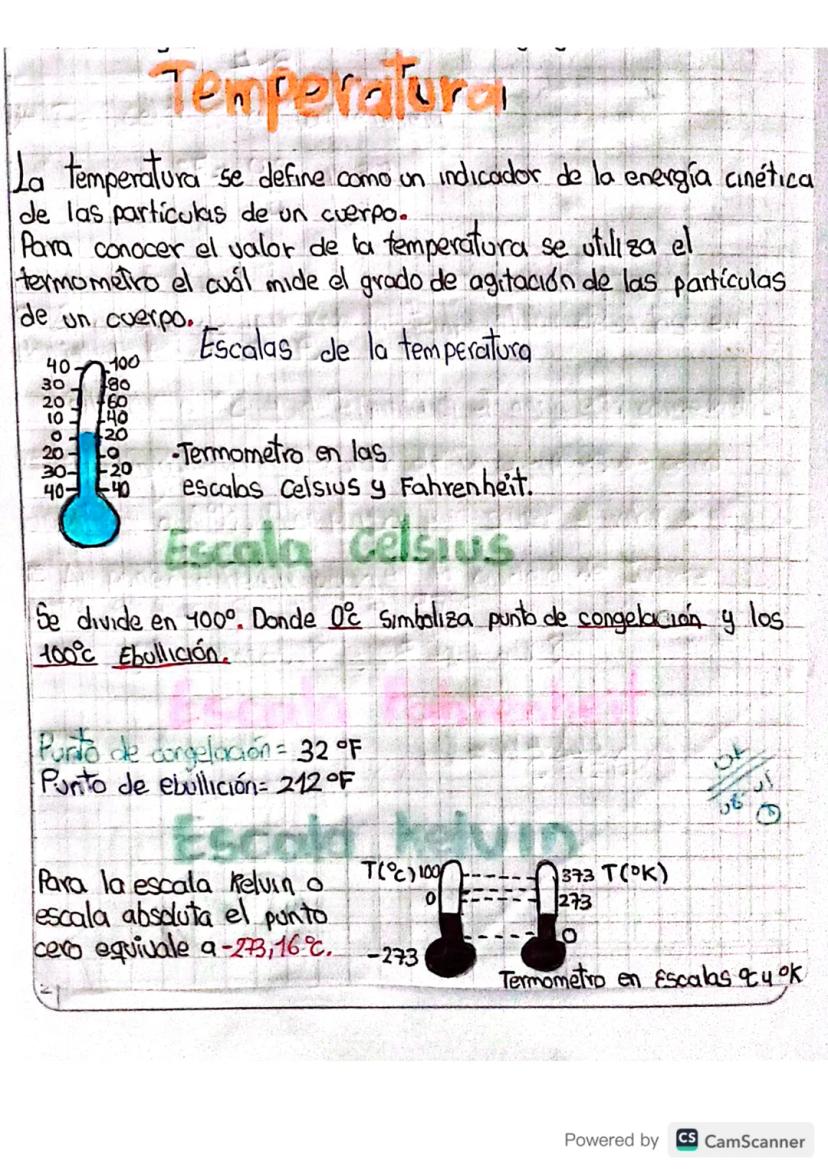 Temperatura
La temperatura se define como un indicador de la energía cinética
de las partículas de un cuerpo.
Para conocer el valor de la temperatura se utiliza el
termometro el cuál mide el grado de agitación de las partículas
de un cuerpo.
Escalas de la temperatura
40 100
30 80
20 60
10 40
0 20
20 0
30 20
40 40
-Termometro en las
escalas Celsius y Fahrenheit.
Escala Celsius
Se divide en 100°. Donde 0°c simboliza punto de congelación y los
100°c Ebullición.
Escala Fahrenheit
Punto de congelación = 32 °F
Punto de ebullición = 212 °F
Escala kelvin
Para la escala Kelvin o
escala absoluta el punto
cero equivale a -273,16 °c.
T(°c) 100 373 T(°K)
0 273
-273 0
Termometro en Escalas °c y °K
2
Powered by CS CamScanner